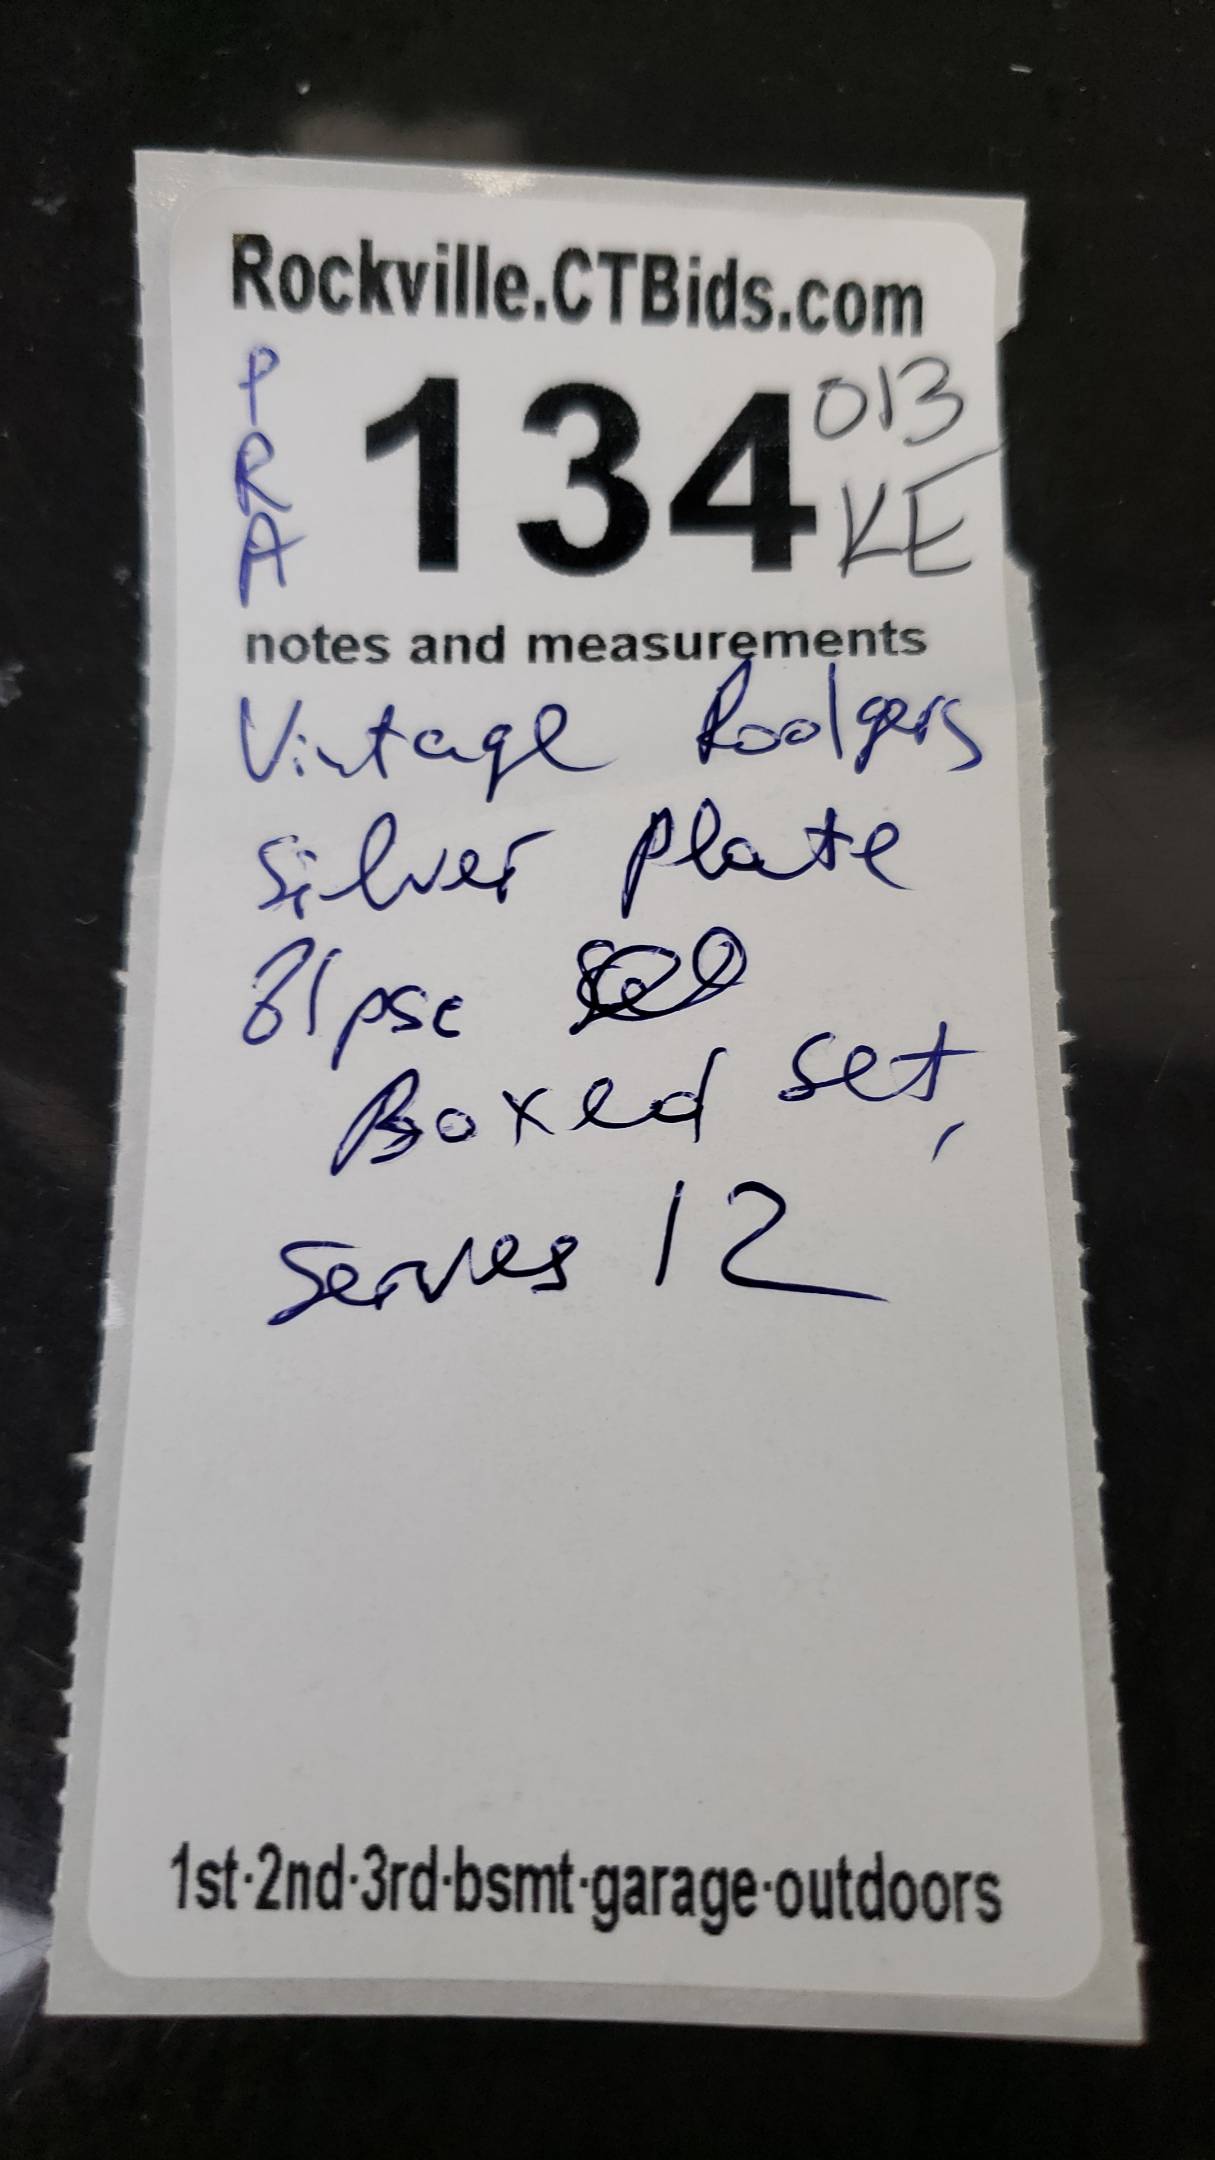 Rockville.CTBids.com
PRA
134
013
KE
notes and measurements
Vintage Rodgers
Silver plate
81 psc
Boxed set,
Serves 12
1st·2nd·3rd·bsmt·garage·outdoors